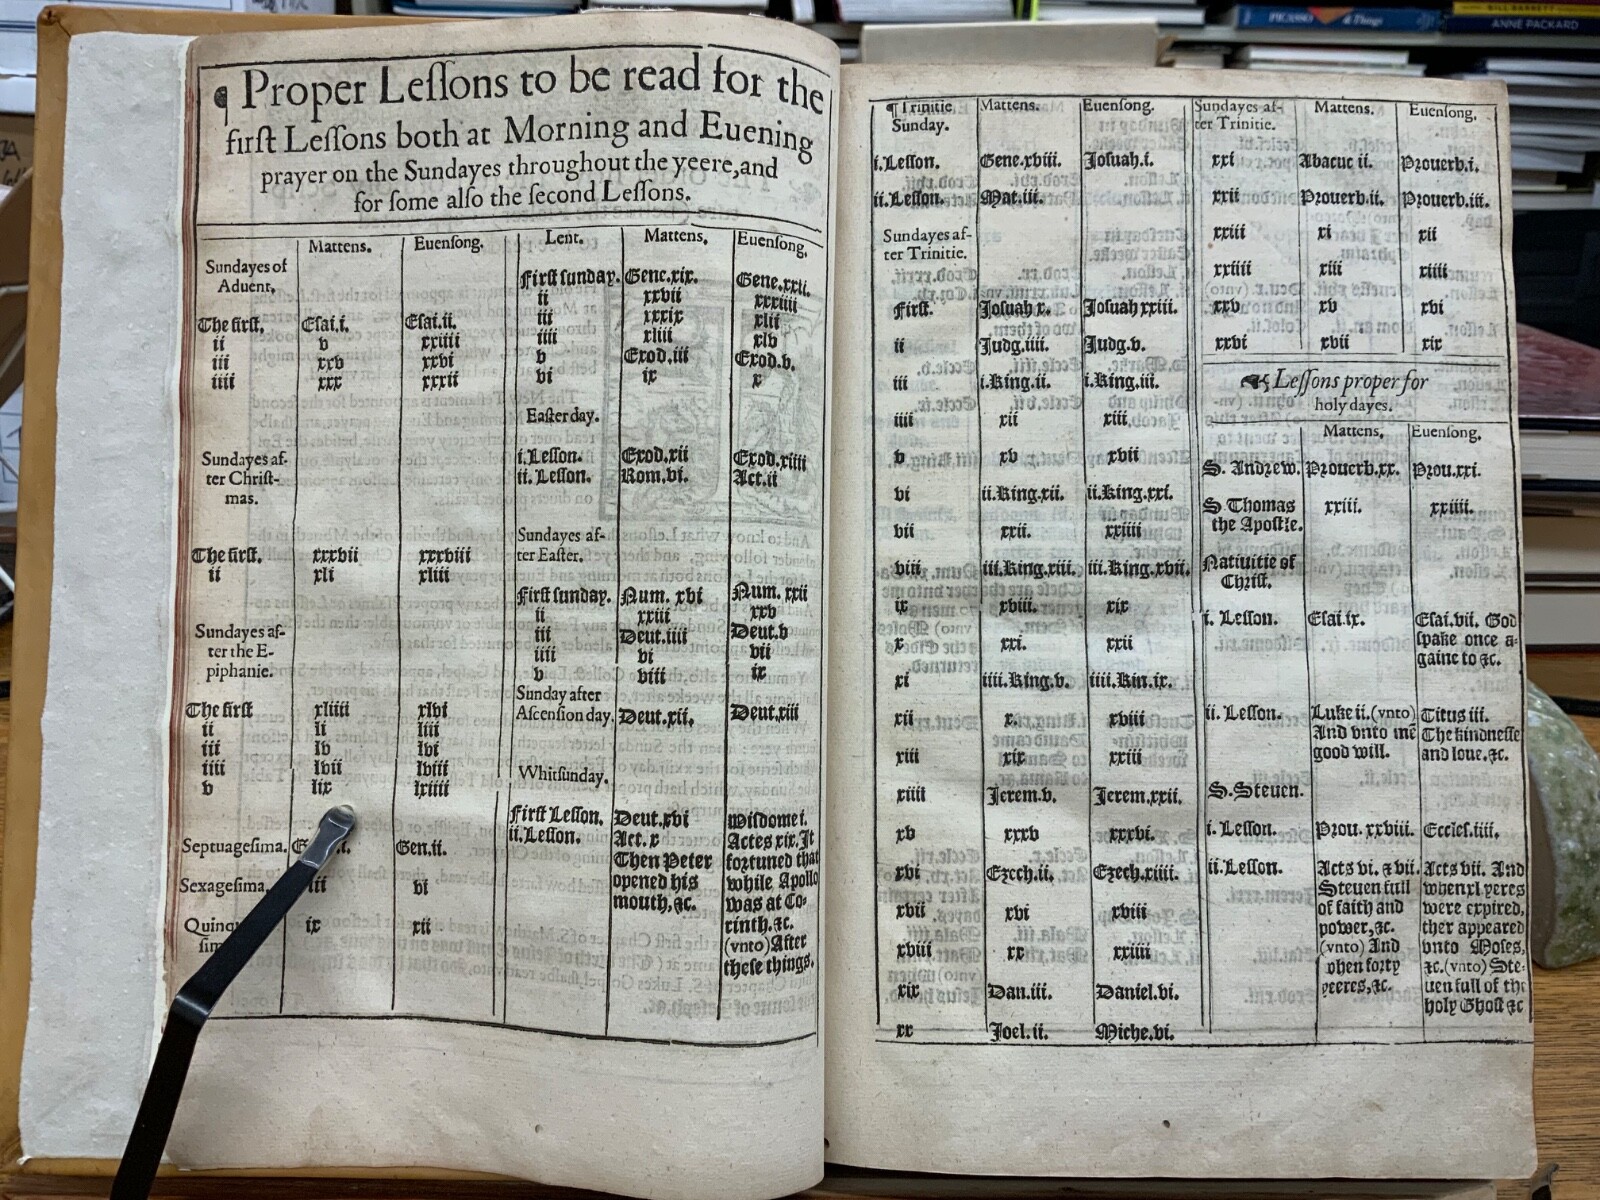 PICASSO & Things
BILL BARRETT
ANNE PACKARD
¶ Proper Leſſons to be read for the
firſt Leſſons both at Morning and Euening
prayer on the Sundayes throughout the yeere, and
for ſome alſo the ſecond Leſſons.
Mattens. Euenſong.
Sundayes of
Aduent,
The firſt, Eſai.i. Eſai.ii.
ii v xxiiii
iii xxv xxvi
iiii xxx xxxii
Sundayes af-
ter Chriſt-
mas.
The firſt. xxxvii xxxviii
ii xli xliii
Sundayes af-
ter the E-
piphanie.
The firſt xliiii xlvi
ii li liii
iii lv lvi
iiii lvii lviii
v lix lxiiii
Septuageſima. Gen.ii.
Sexageſima, iii vi
ix xii
Lent. Mattens, Euenſong,
Firſt ſunday. Gene.xix. Gene.xxii.
ii xxvii xxxiiii
iii xxxix xlii
iiii xliii xlv
v Exod.iii Exod.v.
vi ix x
Eaſter day.
i.Leſſon. Exod.xii Exod.xiiii
ii. Leſſon. Rom.vi. Act.ii
Sundayes af-
ter Eaſter.
Firſt ſunday. Num. xvi Num. xxii
ii xxiii xxv
iii Deut.iiii Deut.v
iiii vi vii
v viii ix
Sunday after
Aſcenſion day, Deut.xii, Deut.xiii
Whitſunday.
Firſt Leſſon. Deut.xvi Wiſdome i.
ii.Leſſon. Act.x Actes xix.It
Then Peter fortuned that
opened his while Apollo
mouth,&c. was at Co-
rinth.&c.
(vnto) After
theſe things.
¶Trinitie Mattens. Euenſong.
Sunday.
i.Leſſon. Gene.xviii. Joſuah.i.
ii.Leſſon. Mat.iii.
Sundayes af-
ter Trinitie.
Firſt. Joſuah x. Joſuah xxiii.
ii Judg.iiii. Judg.v.
iii i.King.ii. i.King.iii.
iiii xii xiii
v xv xvii
vi ii.King.xii. ii.King.xxi.
vii xxii. xxiiii
viii iii.King.xiii. iii.King.xvii.
ix xviii. xix
x xxi. xxii
xi iiii.King.v. iiii.Kin.ix.
xii x. xviii
xiii xix xxiii
xiiii Jerem.v. Jerem.xxii.
xv xxxv xxxvi.
xvi Ezech.ii. Ezech.xiiii.
xvii xvi xviii
xviii xx xxiiii
xix Dan.iii. Daniel.vi.
xx Joel.ii. Miche.vi.
Sundayes af- Mattens. Euenſong.
ter Trinitie.
xxi Abacuc ii. Prouerb.i.
xxii Prouerb.ii. Prouerb.iii.
xxiii xi xii
xxiiii xiii xiiii
xxv xv xvi
xxvi xvii xix
Leſſons proper for
holy dayes.
Mattens, Euenſong,
S. Andrew. Prouerb.xx. Prou.xxi.
S.Thomas xxiii. xxiiii.
the Apoſtle.
Natiuitie of
Chriſt.
i. Leſſon. Eſai.ix. Eſai.vii. God
ſpake once a-
gaine to &c.
ii. Leſſon. Luke ii.(vnto) Titus iii.
And vnto mē The kindneſſe
good will. and loue,&c.
S.Steuen.
i. Leſſon. Prou.xxviii. Eccleſ.iiii,
ii.Leſſon. Acts vi. & vii. Acts vii. And
Steuen full when xl yeres
of faith and were expired,
power,&c. ther appeared
(vnto) And vnto Moſes,
when forty &c.(vnto) Ste-
yeeres,&c. uen full of the
holy Ghoſt &c